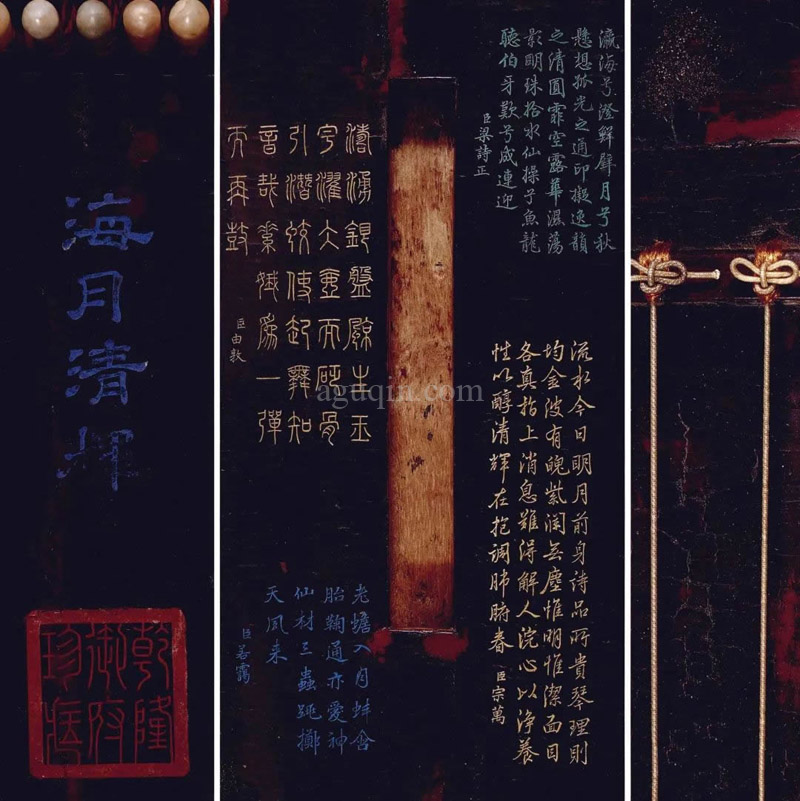 海月清輝
乾隆
御府
珍藏
瀛海兮澄鮮璧月兮秋
懸想孤光之通印擬逸韻
之清圓霏空露華濕蕩
影明珠拾水仙操兮魚龍
聽伯牙歎兮成連迎
臣梁詩正
濤湧銀盤驪吐玉
宇濯 壺而砭骨
引潛蛟使起舞知
音哉素娥為一彈
而再鼓
臣由敦
流水今日明月前身詩品所貴琴理則
均金波有魄紫瀾無塵惟明惟潔面目
各真指上消息難得解人浣心以淨養
性以醇清輝在抱調肺腑春
臣宗萬
老蟾入月蚌含
胎鞠通亦愛神
仙材三蟲跳擲
天風來
臣若靄
aguqin.com